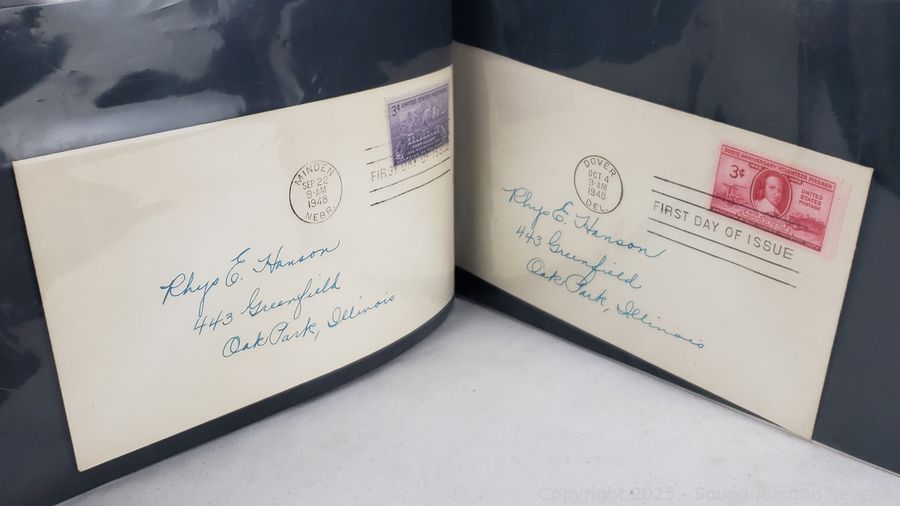 3¢ UNITED STATES POSTAGE
MINDEN
SEP 22
9-AM
1948
NEBR.
FIRST DAY OF ISSUE
Rhys E. Hanson
443 Greenfield
Oak Park, Illinois
300TH ANNIVERSARY VOLUNTEER FIREMEN
3¢
UNITED
STATES
POSTAGE
DOVER
OCT 4
9-AM
1948
DEL.
FIRST DAY OF ISSUE
Rhys E. Hanson
443 Greenfield
Oak Park, Illinois
Copyright 2025 - Sound Auction Service